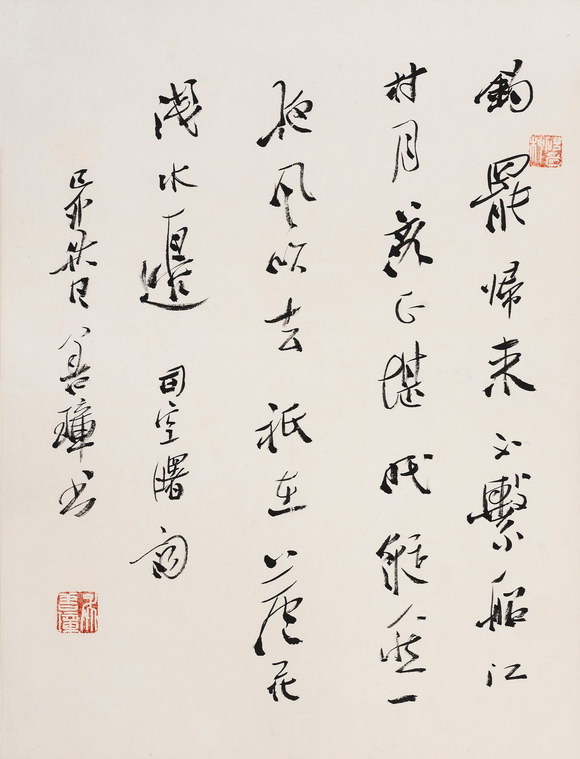 釣罷歸來不繫船江
村月落正堪眠縱然一
夜風吹去祇在蘆花
淺水邊 司空曙詞
日善璋书